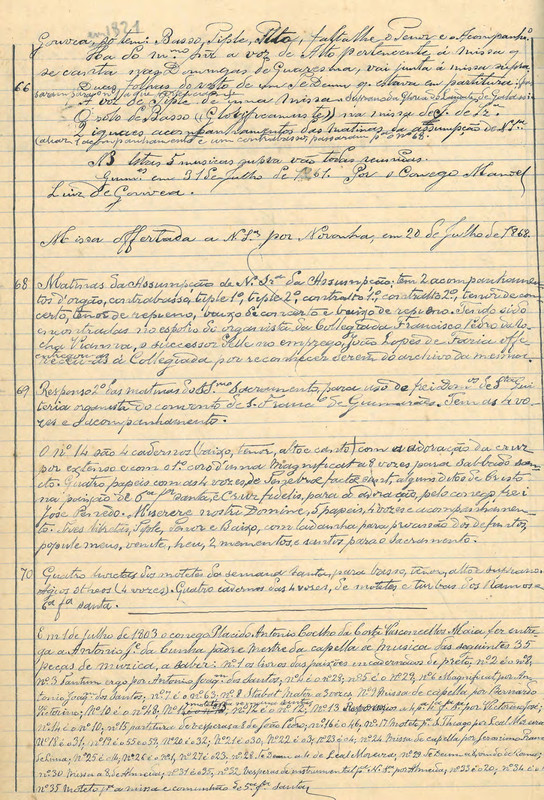 em 1821
Gouvea, só tem: Basso, Tiple, Alto, falta lhe o Tenor e o Acompanhº
Na do mmo. foi a voz de Alto pertencente á missa q
se canta nas Domingas de Quaresma, vai junta á missa supra
66 Duas folhas do solo de um Te Deum q. estava em partitura
A voz de Tiple de uma missa
O solo de Basso (Glorificamus te) na missa de S. de Luz.
3 iguaes acompanhamentos das matinas da Assumpção de N. Srª
1 acompanhamento e um contrabasso, passaram pª o nº 68.
NB Estas 5 musicas supra vão todas reunidas.
Guimes. em 31 de julho de 1861. Por o Conego Manoel
Luiz de Gouvea.
Missa offertada a N. Srª por Noronha, em 20 de Julho de 1868.
68 Matinas da Assumpção de N. Srª da Assumpção: tem 2 acompanhamen-
tos d'orgão, contrabasso, tiple 1º, tiple 2º, contralto 1º, contralto 2º, tenor de con-
certo, tenor de repueno, baixo de concerto e baixo de repueno. Tendo sido
encontradas no espolio do organista da Collegiada Francisco Pedro da Ro-
cha Vianna, o successor delle no emprego, João Lopes de Faria offe-
receu-as á Collegiada por reconhecer serem do archivo da mesma.
entregou-as
69 Responso 2º das matinas do SSmo Sacramento, para uso de frei Domos de Sta Qui-
teria organista do convento de S. Franco de Guimarães. Tem as 4 vo-
zes e o acompanhamento.
O nº 14 são 4 cadernos (baixo, tenor, alto e canto) com a adoração da cruz
por extenso e com o 1º coro d'uma Magnificat a 8 vozes para sabbado san-
to. Quatro papeis com as 4 vozes, de Tenebrae factae sunt, alguns ditos de Christo
na paixão de 6ª fª santa, e Crux fidelis, para a adoração, pelo conego frei
José Penedo. Miserere nostri Domine, 5 papeis, 4 vozes e acompanhamen-
to. Tres livretes, Tiple, Tenor e Baixo, com ladainha para procissão dos defuntos,
popule meus, venite, heu, 2 mementos e santos para o sacramento.
70 Quatro livretes dos moteto da semana santa, para basso, tenor, alto e suprano.
(4 vozes). Quatro cadernos das 4 vozes, de motetes e turbas dos Ramos e
6ª fª santa.
Em 1 de julho de 1803 o conego Placido Antonio Coelho da Costa Vasconcellos Maia fez entre-
ga a Antonio jº da Cunha, padre mestre da capella de musica das seguintes 35
peças de muzica, a saber: Nº 1 os livros das paixões encadernados de preto; nº 2 é o nº 2;
nº 3 Tantum ergo por Antonio Joaqm dos Santos; nº 4 é o nº 28; nº 5 é o nº 27; nº 6 Magnificat por An-
tonio Joaqm dos Santos; nº 7 é o nº 63; nº 8 Stabat Mater a 3 vozes; nº 9 Missa de capella por Bernardo
Victorino; nº 10 é o nº 48; nº 12 é o nº 12; nº 13 Responsorios
nº 14 é o nº 10; nº 15 partitura de vesperas de S. João Pedro; nº 16 é o 46; nº 17 Moteto pª S. Thiago por Leal Moreira
Nº 18 é o 31; nº 19 é o 55 e 57; nº 20 é o 32; nº 21 é o 30; nº 22 é o 3; nº 23 é o 4; nº 24 Missa de capella por Jeronimo Fran-
nº 25 é o 11; nº 26 é o nº 1; nº 27 é o 23; nº 28 Te Deum a 4 de Leal Moreira; nº 29 Te Deum a 4
nº 30 Missa a 8 de Almeida; nº 31 é o 35; nº 32 Vesperas de instrumental pª N. Srª por Almeida; nº 33 é o 20; nº 34 é o
nº 35 Moteto pª a missa e communhão de 5ª fª santa.